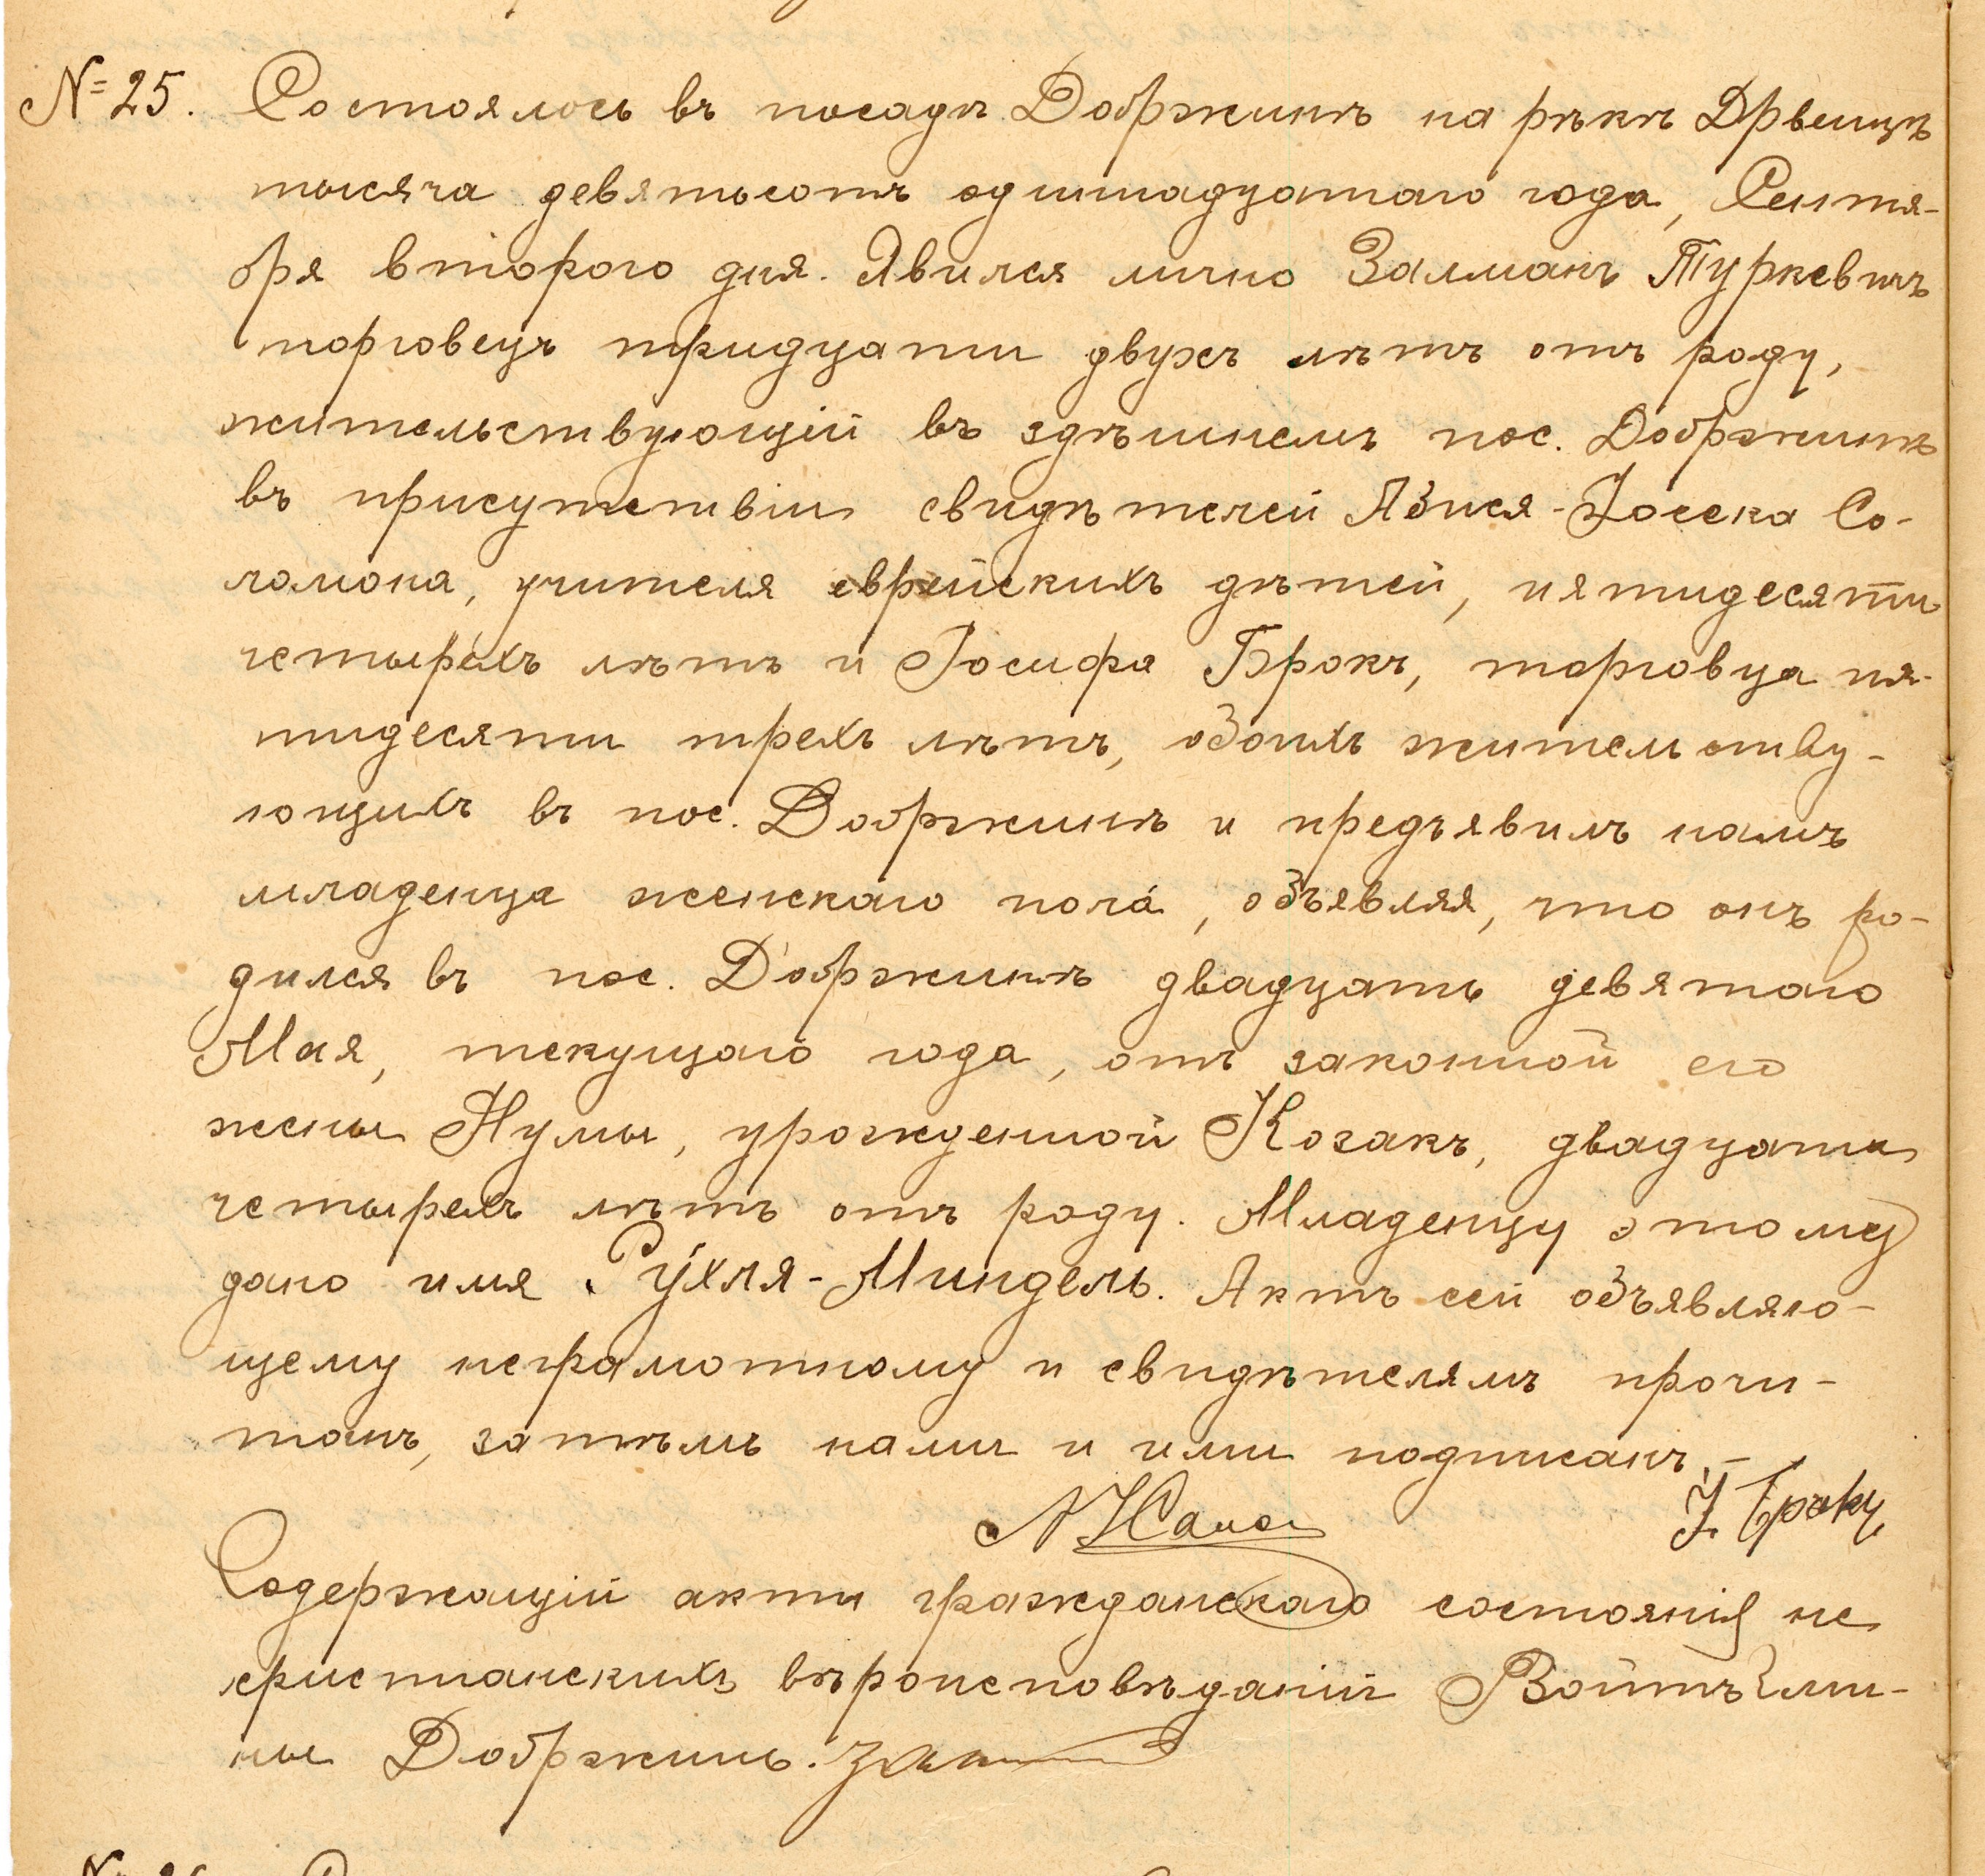 № 25. Состоялось въ посадѣ Добржинѣ на рѣкѣ Дрвенцѣ
тысяча девятьсотъ одинадцатаго года, Сентя-
бря второго дня. Явился лично Залманъ Туркевичъ
торговецъ тридцати двухъ лѣтъ отъ роду,
жительствующій въ здѣшнемъ пос. Добржинѣ
въ присутствіи свидѣтелей Абися-Іосека Со-
ломона, учителя еврейскихъ дѣтей, пятидесяти
четырехъ лѣтъ и Іосифа Брокъ, торговца пя-
тидесяти трехъ лѣтъ, обоихъ жительству-
ющихъ въ пос. Добржинѣ и предъявилъ намъ
младенца женскаго пола, объявляя, что онъ ро-
дился въ пос. Добржинѣ двадцать девятаго
Мая, текущаго года, отъ законной его
жены Нумы, урожденной Козакъ, двадцати
четырехъ лѣтъ отъ роду. Младенцу этому
дано имя Рухля-Миндель. Актъ сей объявляю-
щему неграмотному и свидѣтелямъ прочи-
танъ, затѣмъ нами и ими подписанъ.-
І. Брокъ
Содержащій акты гражданскаго состоянія не
христіанскихъ вѣроисповѣданій Войтъ Гми-
ны Добржинь.